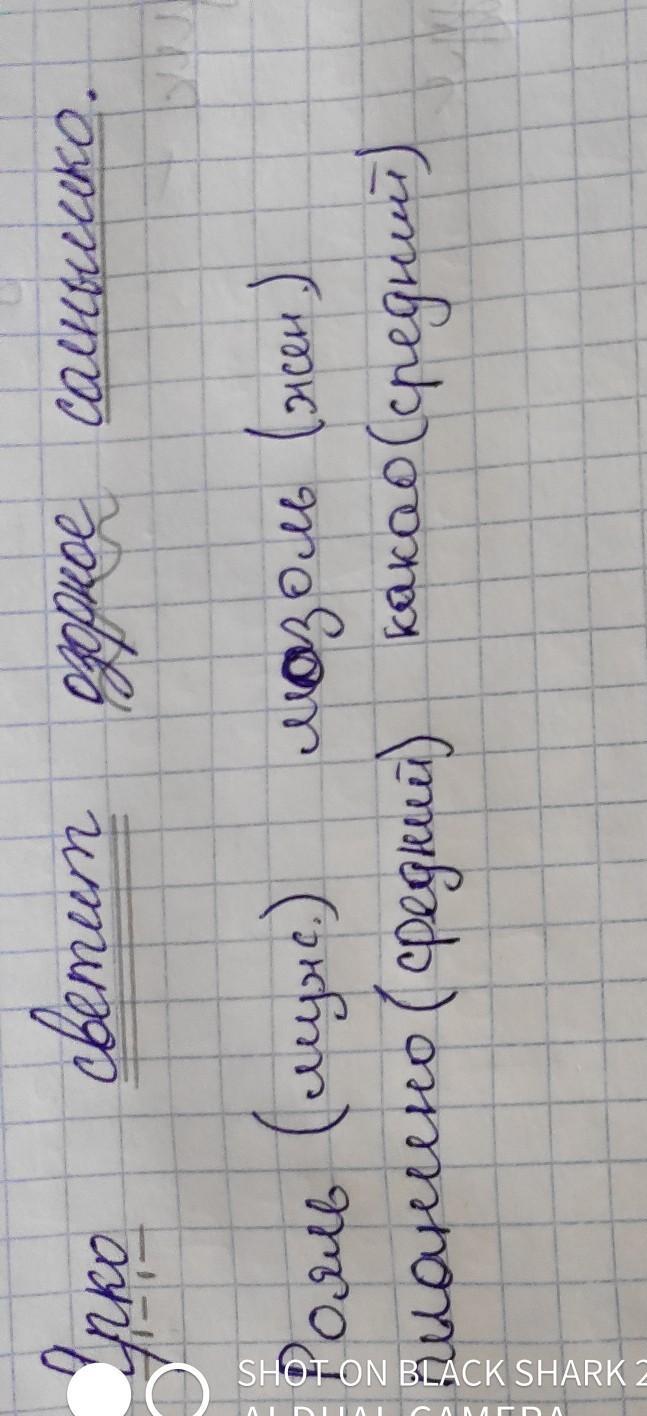 Ярко светит озорное солнышко.
Рояль (муж.) мозоль (жен.)
пианино (средний) какао (средний)
SHOT ON BLACK SHARK 2
AI DUAL CAMERA